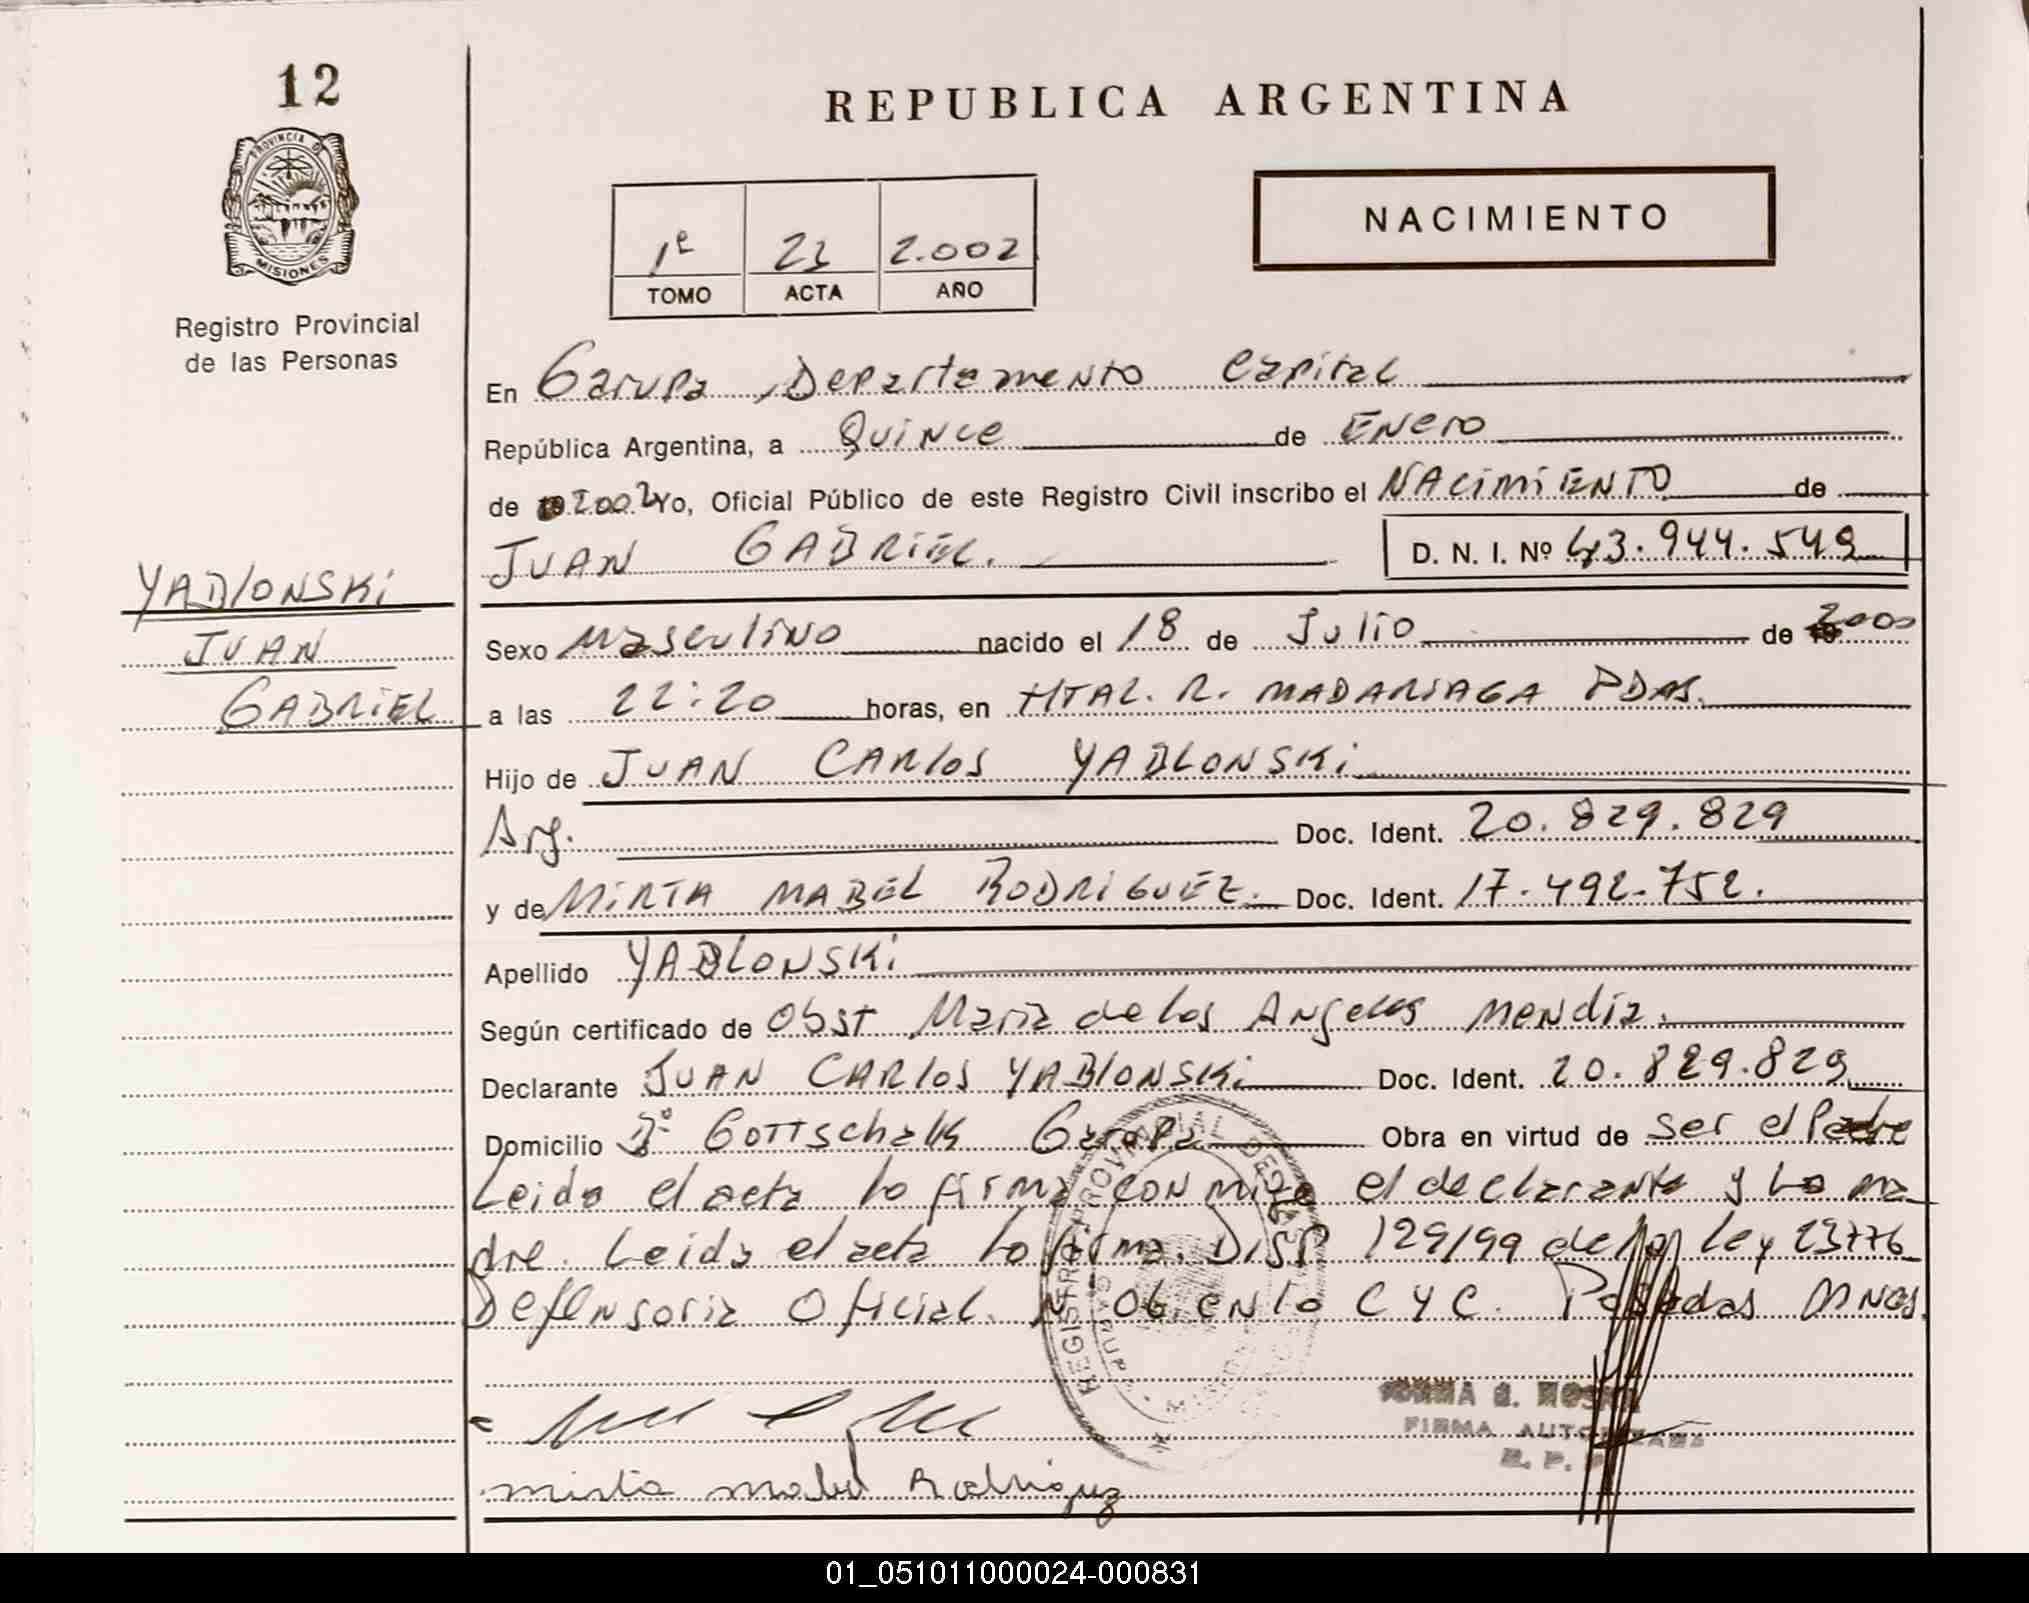 12
PROVINCIA DE
MISIONES
Registro Provincial
de las Personas
REPUBLICA ARGENTINA
NACIMIENTO
1º 23 2.002
TOMO ACTA AÑO
En Garupa, Departamento Capital
República Argentina, a Quince de Enero
de 2002 Yo, Oficial Público de este Registro Civil inscribo el NACIMIENTO de
JUAN GABRIEL. D. N. I. Nº 43.944.549
YABLONSKI
JUAN
GABRIEL
Sexo Masculino nacido el 18 de Julio de 2000
a las 22:20 horas, en HTAL. R. MADARIAGA PDAS.
Hijo de JUAN CARLOS YABLONSKI
Arg. Doc. Ident. 20.829.829
y de MIRTA MABEL RODRIGUEZ. Doc. Ident. 17.492.752.
Apellido YABLONSKI
Según certificado de Obst Maria de los Angeles Mendia.
Declarante JUAN CARLOS YABLONSKI Doc. Ident. 20.829.829
Domicilio Bº Gottschalk Garupa Obra en virtud de ser el Padre
Leida el acta la firma conmigo el declarante y la ma
dre. Leida el acta la firma. DISP 129/99 de la Ley 23776
Defensoria Oficial Nº 06 en lo C y C. Posadas Mnes.
REGISTRO PROVINCIAL DE
GARUPA
FIRMA AUTORIZADA
R. P. P.
Mirta Mabel Rodriguez
01_051011000024-000831